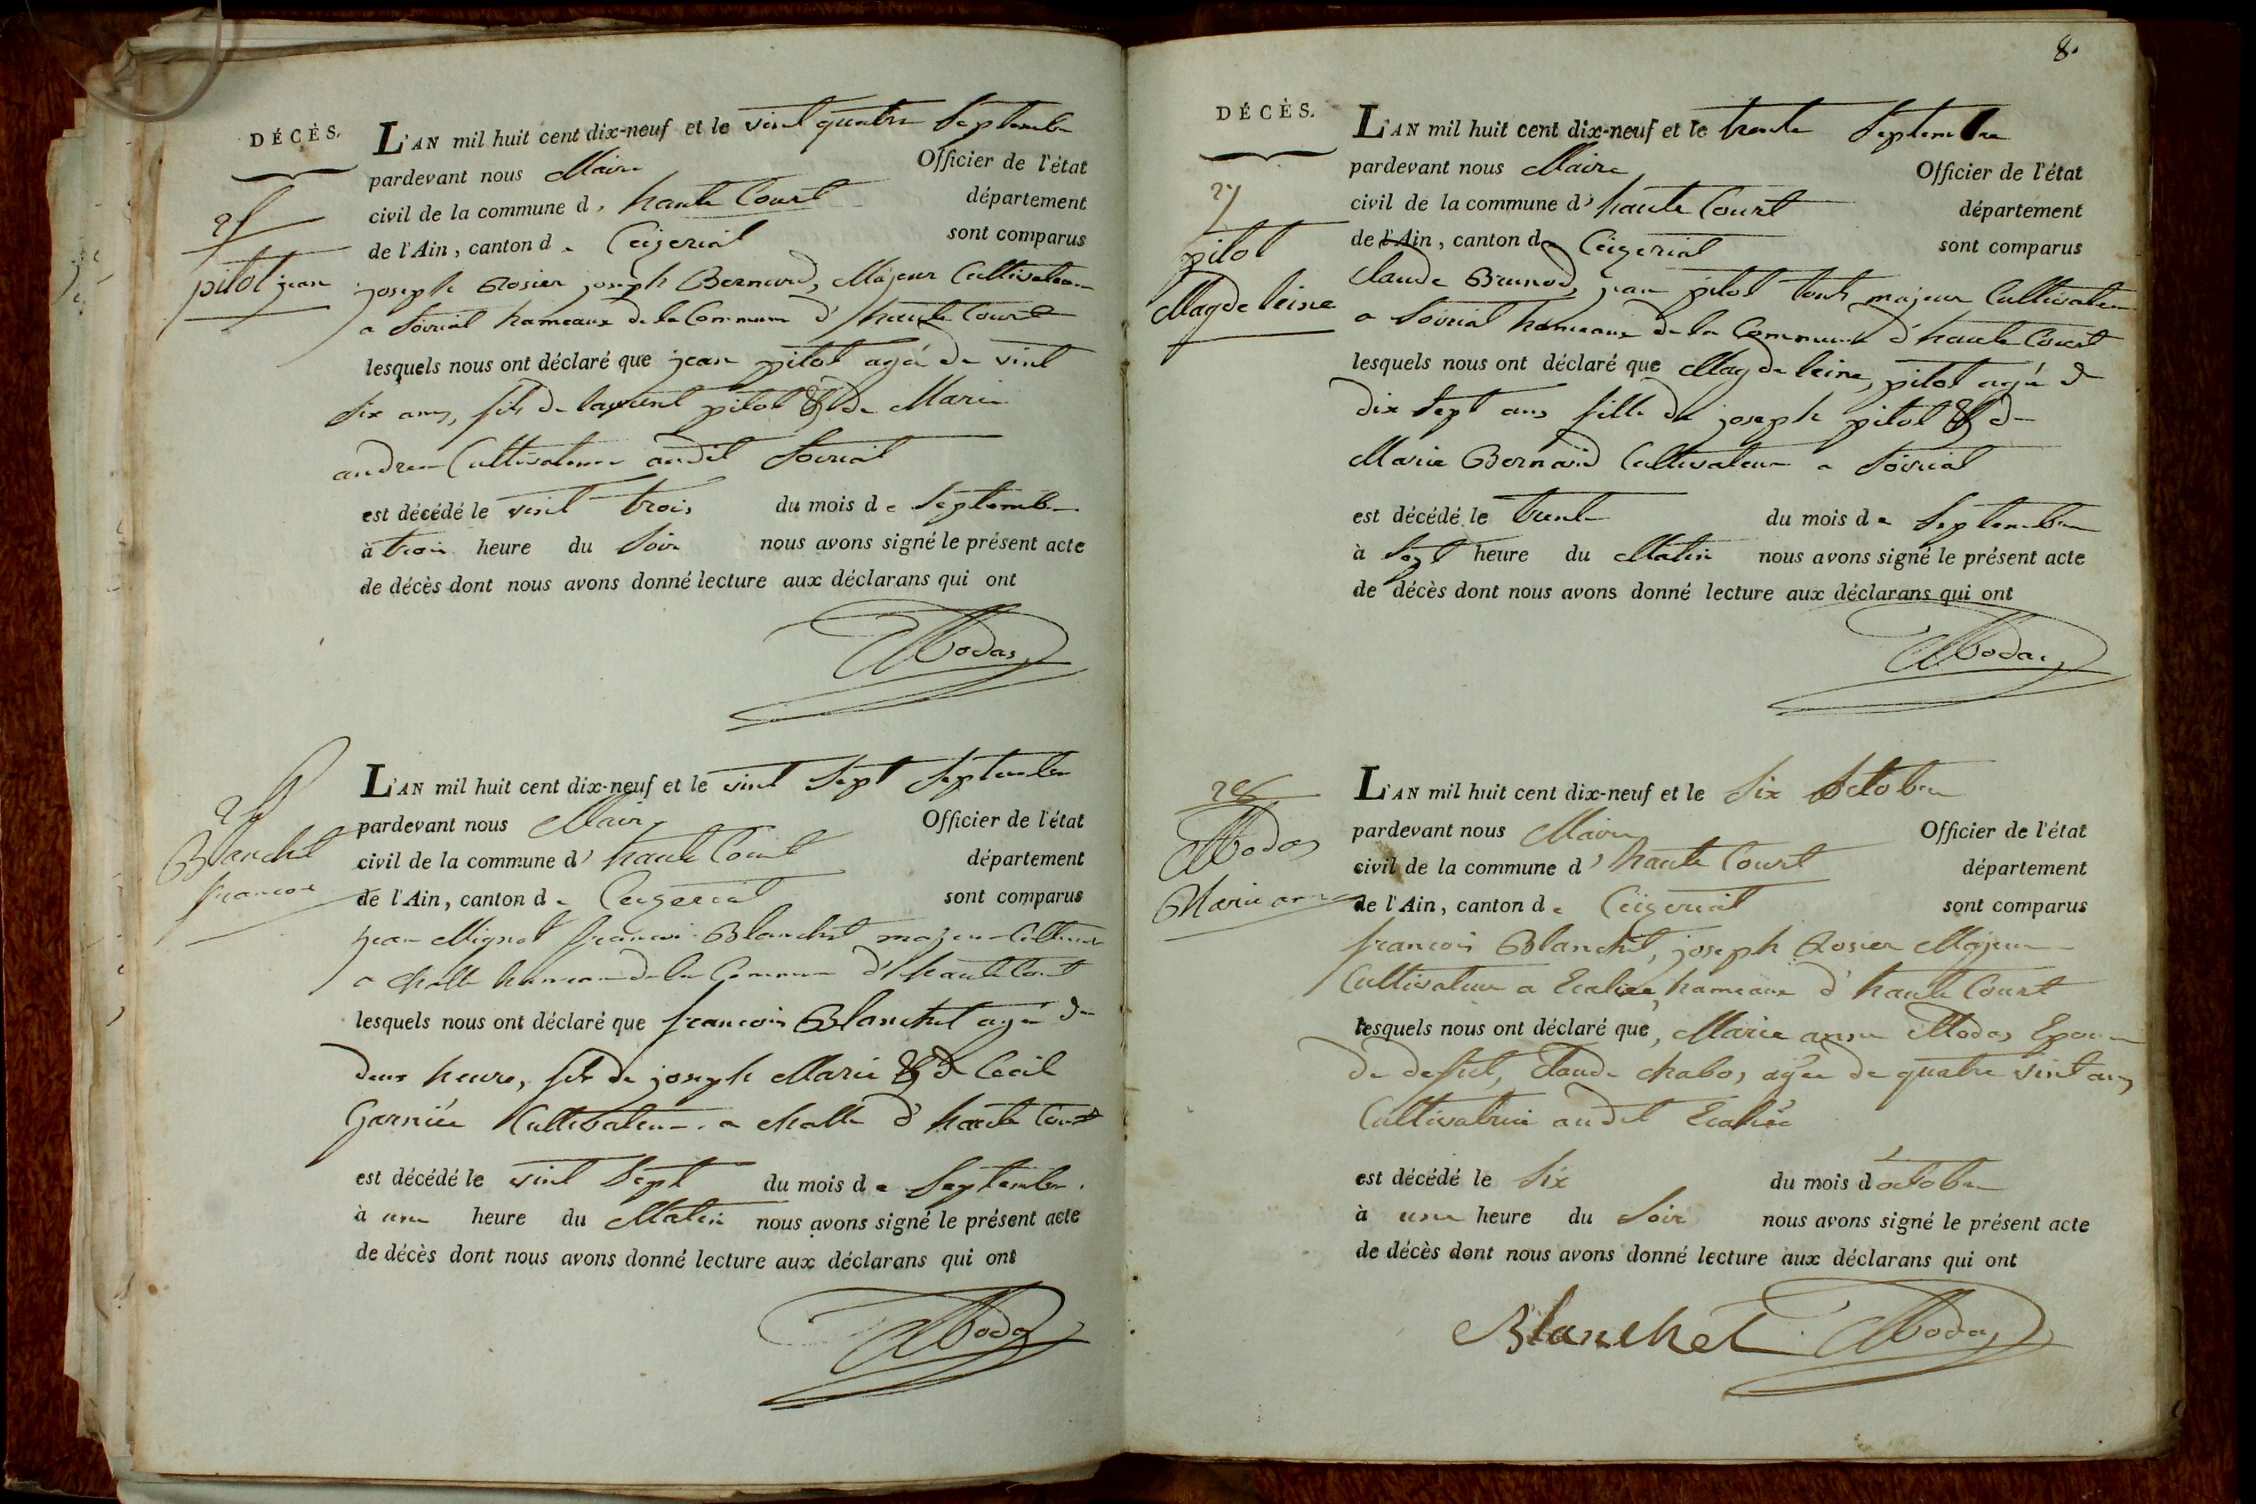 DÉCÈS.
25
pilot jean
L'AN mil huit cent dix-neuf et le vint quatre Septembre
pardevant nous Maire Officier de l'état
civil de la commune d' haute Court département
de l'Ain, canton de Ceizeriat sont comparus
joseph Rosier joseph Bernard, Majeur Cultivateur
a Soiriat hameaux de la Commune d'haute Court
lesquels nous ont déclaré que jean pilot agé de vint
six ans, fils de laurent pilot & de Marie
andree Cultivateur audit Soiriat
est décédé le vint trois du mois de Septembre
à trois heure du Soir nous avons signé le présent acte
de décès dont nous avons donné lecture aux déclarans qui ont
Modas
26
Blanchet
francois
L'AN mil huit cent dix-neuf et le vint Sept Septembre
pardevant nous Maire Officier de l'état
civil de la commune d' haute Court département
de l'Ain, canton de Ceizeriat sont comparus
jean Mignot francois Blanchet majeur
a challe hameau de la Commune d'haute Court
lesquels nous ont déclaré que francois Blanchet agé de
deux heures, fils de joseph Marie & de Cecil
Garniér Cultivateur a challe d'haute Court
est décédé le vint Sept du mois de Septembre
à une heure du Matin nous avons signé le présent acte
de décès dont nous avons donné lecture aux déclarans qui ont
Modas
8.
DÉCÈS.
27
pilot
Magdeleine
L'AN mil huit cent dix-neuf et le trente Septembre
pardevant nous Maire Officier de l'état
civil de la commune d' haute Court département
de l'Ain, canton de Ceizeriat sont comparus
Claude Brunod, jean pilot touts majeur Cultivateur
a Soiriat hameaux de la Commune d'haute Court
lesquels nous ont déclaré que Magdeleine, pilot agée de
dix Sept ans fille de joseph pilot & de
Marie Bernard Cultivateur a Soiriat
est décédé le trente du mois de Septembre
à Sept heure du Matin nous avons signé le présent acte
de décès dont nous avons donné lecture aux déclarans qui ont
Modas
28
Modas
Marie anne
L'AN mil huit cent dix-neuf et le Six Octobre
pardevant nous Maire Officier de l'état
civil de la commune d' haute Court département
de l'Ain, canton de Ceizeriat sont comparus
francois Blanchet, joseph Rosier Majeur
Cultivateur a hameaux d'haute Court
lesquels nous ont déclaré que, Marie anne Modas
de Claude chabos agée de quatre vint ans
Cultivatrice audit
est décédé le Six du mois d'octobre
à une heure du Soir nous avons signé le présent acte
de décès dont nous avons donné lecture aux déclarans qui ont
Blanchet Modas